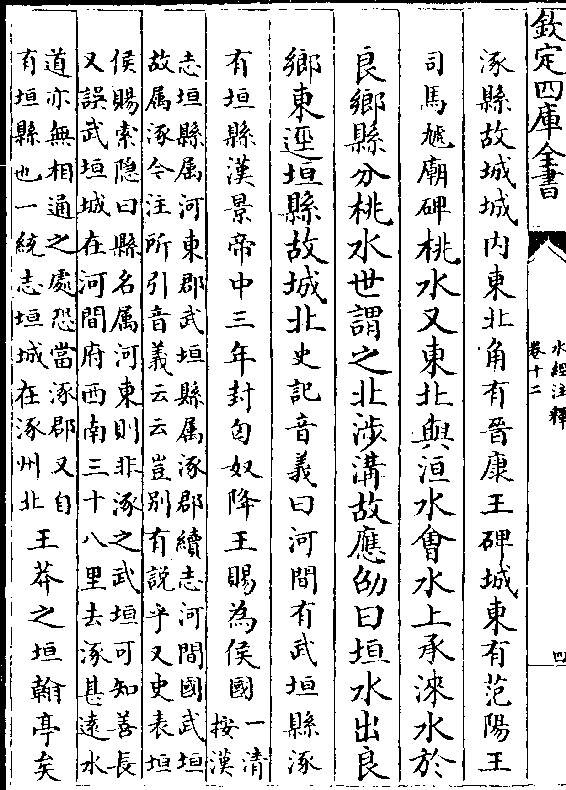 欽定四庫全書
水經注釋
卷十二
四
涿縣故城城内東北角有晉康王碑城東有范陽王
司馬虓廟碑桃水又東北與洹水會水上承淶水於
良鄉縣分桃水世謂之北涉溝故應劭曰垣水出良
鄉東逕垣縣故城北史記音義曰河間有武垣縣涿
有垣縣漢景帝中三年封匈奴降王賜為侯國一清
按漢
志垣縣属河東郡武垣縣属涿郡續志河間國武垣
故属涿今注所引音義云云豈别有説乎又史表垣
侯賜索隐曰縣名属河東則非涿之武垣可知善長
又誤武垣城在河間府西南三十八里去涿甚遠水
道亦無相通之處恐當涿郡又自
有垣縣也一統志垣城在涿州北
王莽之垣翰亭矣